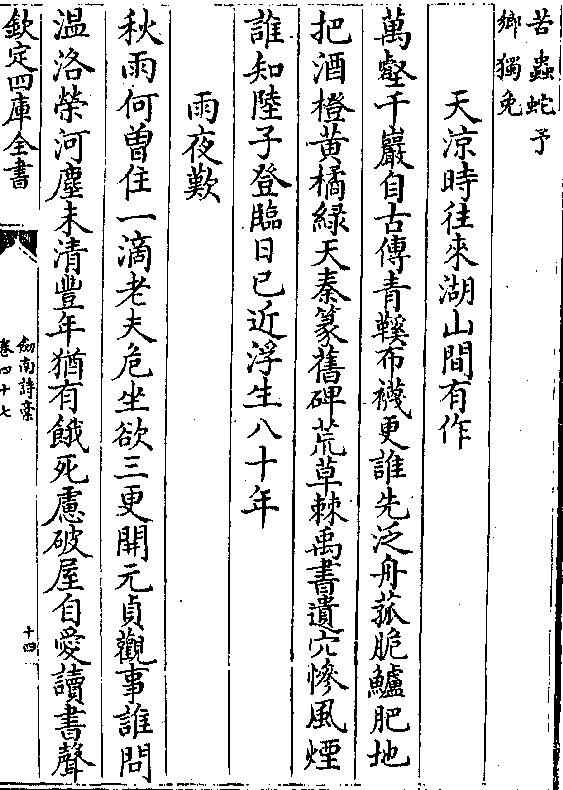 苦蟲蛇予
鄉獨免
天涼時往來湖山間有作
萬壑千巖自古傳青鞵布襪更誰先泛舟菰脆鱸肥地
把酒橙黃橘綠天秦篆舊碑荒草棘禹書遺穴慘風煙
誰知陸子登臨日已近浮生八十年
雨夜歎
秋雨何曾住一滴老夫危坐欲三更開元貞觀事誰問
温洛榮河塵未清豐年猶有餓死慮破屋自愛讀書聲
欽定四庫全書
劍南詩稾
卷四十七
十四